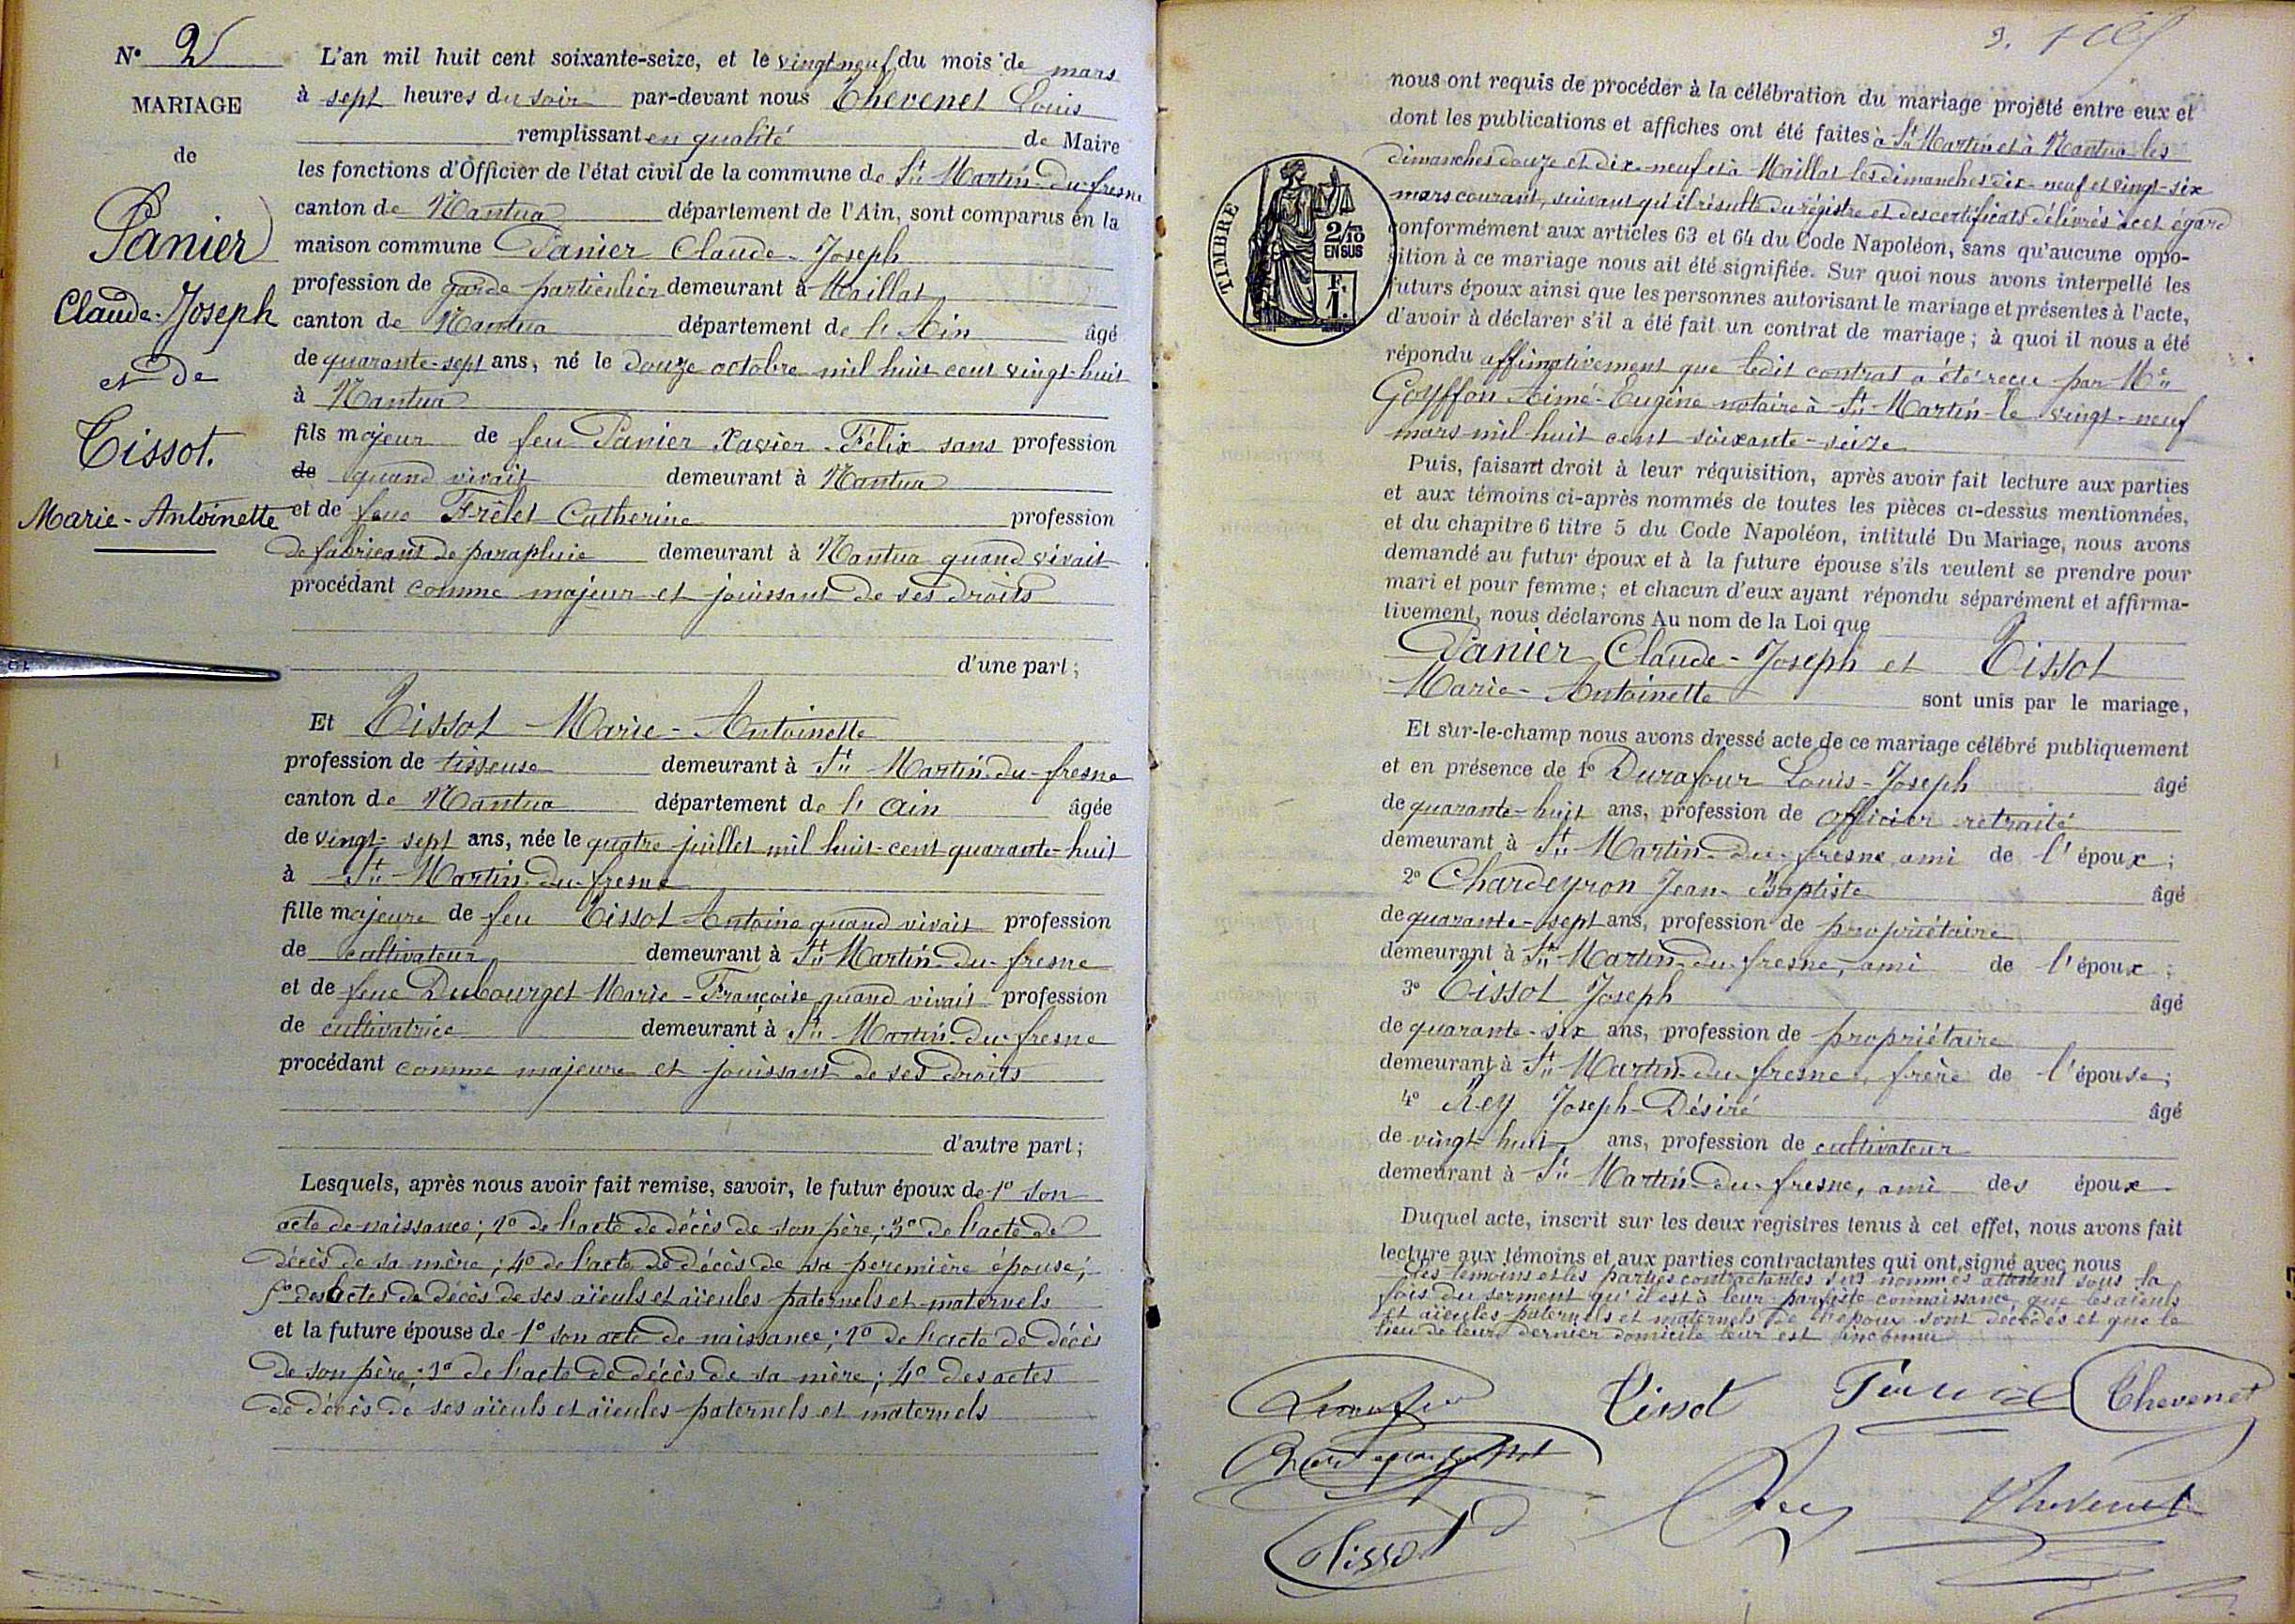 N° 2
MARIAGE
de
Panier
Claude-Joseph
et de
Tissot.
Marie-Antoinette
L'an mil huit cent soixante-seize, et le vingt neuf du mois de mars
à sept heures du soir par-devant nous Thevenet Louis
remplissant en qualité de Maire
les fonctions d'Officier de l'état civil de la commune de St Martin-du-fresne
canton de Nantua département de l'Ain, sont comparus en la
maison commune Panier Claude-Joseph
profession de garde particulier demeurant à Maillat
canton de Nantua département de l'Ain âgé
de quarante-sept ans, né le douze octobre mil huit cent vingt-huit
à Nantua
fils majeur de feu Panier Xavier-Félix sans profession
de quand vivait demeurant à Nantua
et de feue Frèlet Catherine profession
de fabricant de parapluie demeurant à Nantua quand vivait
procédant comme majeur et jouissant de ses droits
d'une part;
Et Tissot Marie-Antoinette
profession de tisseuse demeurant à St Martin-du-fresne
canton de Nantua département de l'ain âgée
de vingt-sept ans, née le quatre juillet mil huit-cent quarante-huit
à St Martin-du-fresne
fille majeure de feu Tissot Antoine quand vivait profession
de cultivateur demeurant à St Martin-du-fresne
et de feue Dubourget Marie-Françoise quand vivait profession
de cultivatrice demeurant à St Martin-du-fresne
procédant comme majeure et jouissant de ses droits
d'autre part;
Lesquels, après nous avoir fait remise, savoir, le futur époux de 1° son
acte de naissance; 2° de l'acte de décès de son père; 3° de l'acte de
décès de sa mère; 4° de l'acte de décès de sa peremière épouse;
5° des actes de décès de ses aïeuls et aïeules paternels et maternels
et la future épouse de 1° son acte de naissance; 2° de l'acte de décès
de son père; 3° de l'acte de décès de sa mère; 4° des actes
de décès de ses aïeuls et aïeules paternels et maternels
3.
nous ont requis de procéder à la célébration du mariage projeté entre eux et
dont les publications et affiches ont été faites à St Martin et à Nantua les
dimanches douze et dix-neuf et à Maillat les dimanches dix-neuf et vingt-six
mars courant, suivant qu'il résulte du régistre et des certificats délivrés à cet égard
TIMBRE
2/10
EN SUS
F.
1.
conformément aux articles 63 et 64 du Code Napoléon, sans qu'aucune oppo-
sition à ce mariage nous ait été signifiée. Sur quoi nous avons interpellé les
futurs époux ainsi que les personnes autorisant le mariage et présentes à l'acte,
d'avoir à déclarer s'il a été fait un contrat de mariage; à quoi il nous a été
répondu affimativement que ledit contrat a été recu par Me
Goyffon Aimé-Eugène notaire à St Martin le vingt-neuf
mars mil huit cent soixante-seize
Puis, faisant droit à leur réquisition, après avoir fait lecture aux parties
et aux témoins ci-après nommés de toutes les pièces ci-dessus mentionnées,
et du chapitre 6 titre 5 du Code Napoléon, intitulé Du Mariage, nous avons
demandé au futur époux et à la future épouse s'ils veulent se prendre pour
mari et pour femme; et chacun d'eux ayant répondu séparément et affirma-
tivement, nous déclarons Au nom de la Loi que
Panier Claude-Joseph et Tissot
Marie-Antoinette sont unis par le mariage,
Et sur-le-champ nous avons dressé acte de ce mariage célébré publiquement
et en présence de 1° Durafour Louis-Joseph âgé
de quarante-huit ans, profession de officier retraité
demeurant à St Martin-du-fresne ami de l'époux;
2° Chardeyron Jean-Baptiste âgé
de quarante-sept ans, profession de propriétaire
demeurant à St Martin-du-fresne, ami de l'époux;
3° Tissot Joseph âgé
de quarante-six ans, profession de propriétaire
demeurant à St Martin-du-fresne, frère de l'épouse;
4° Rey Joseph-Désiré âgé
de vingt-huit ans, profession de cultivateur
demeurant à St Martin-du-fresne, ami des époux
Duquel acte, inscrit sur les deux registres tenus à cet effet, nous avons fait
lecture aux témoins et aux parties contractantes qui ont signé avec nous
Les témoins et les parties contractantes sus nommés attestent sous la
fois du serment qu'il est à leur parfaite connaissance, que les aïeuls
et aïeules paternels et maternels de l'époux sont décédés et que le
lieu de leurs dernier domicile leur est inconnu
Tissot Panier Thevenet
Rey Thevenet
Tissot